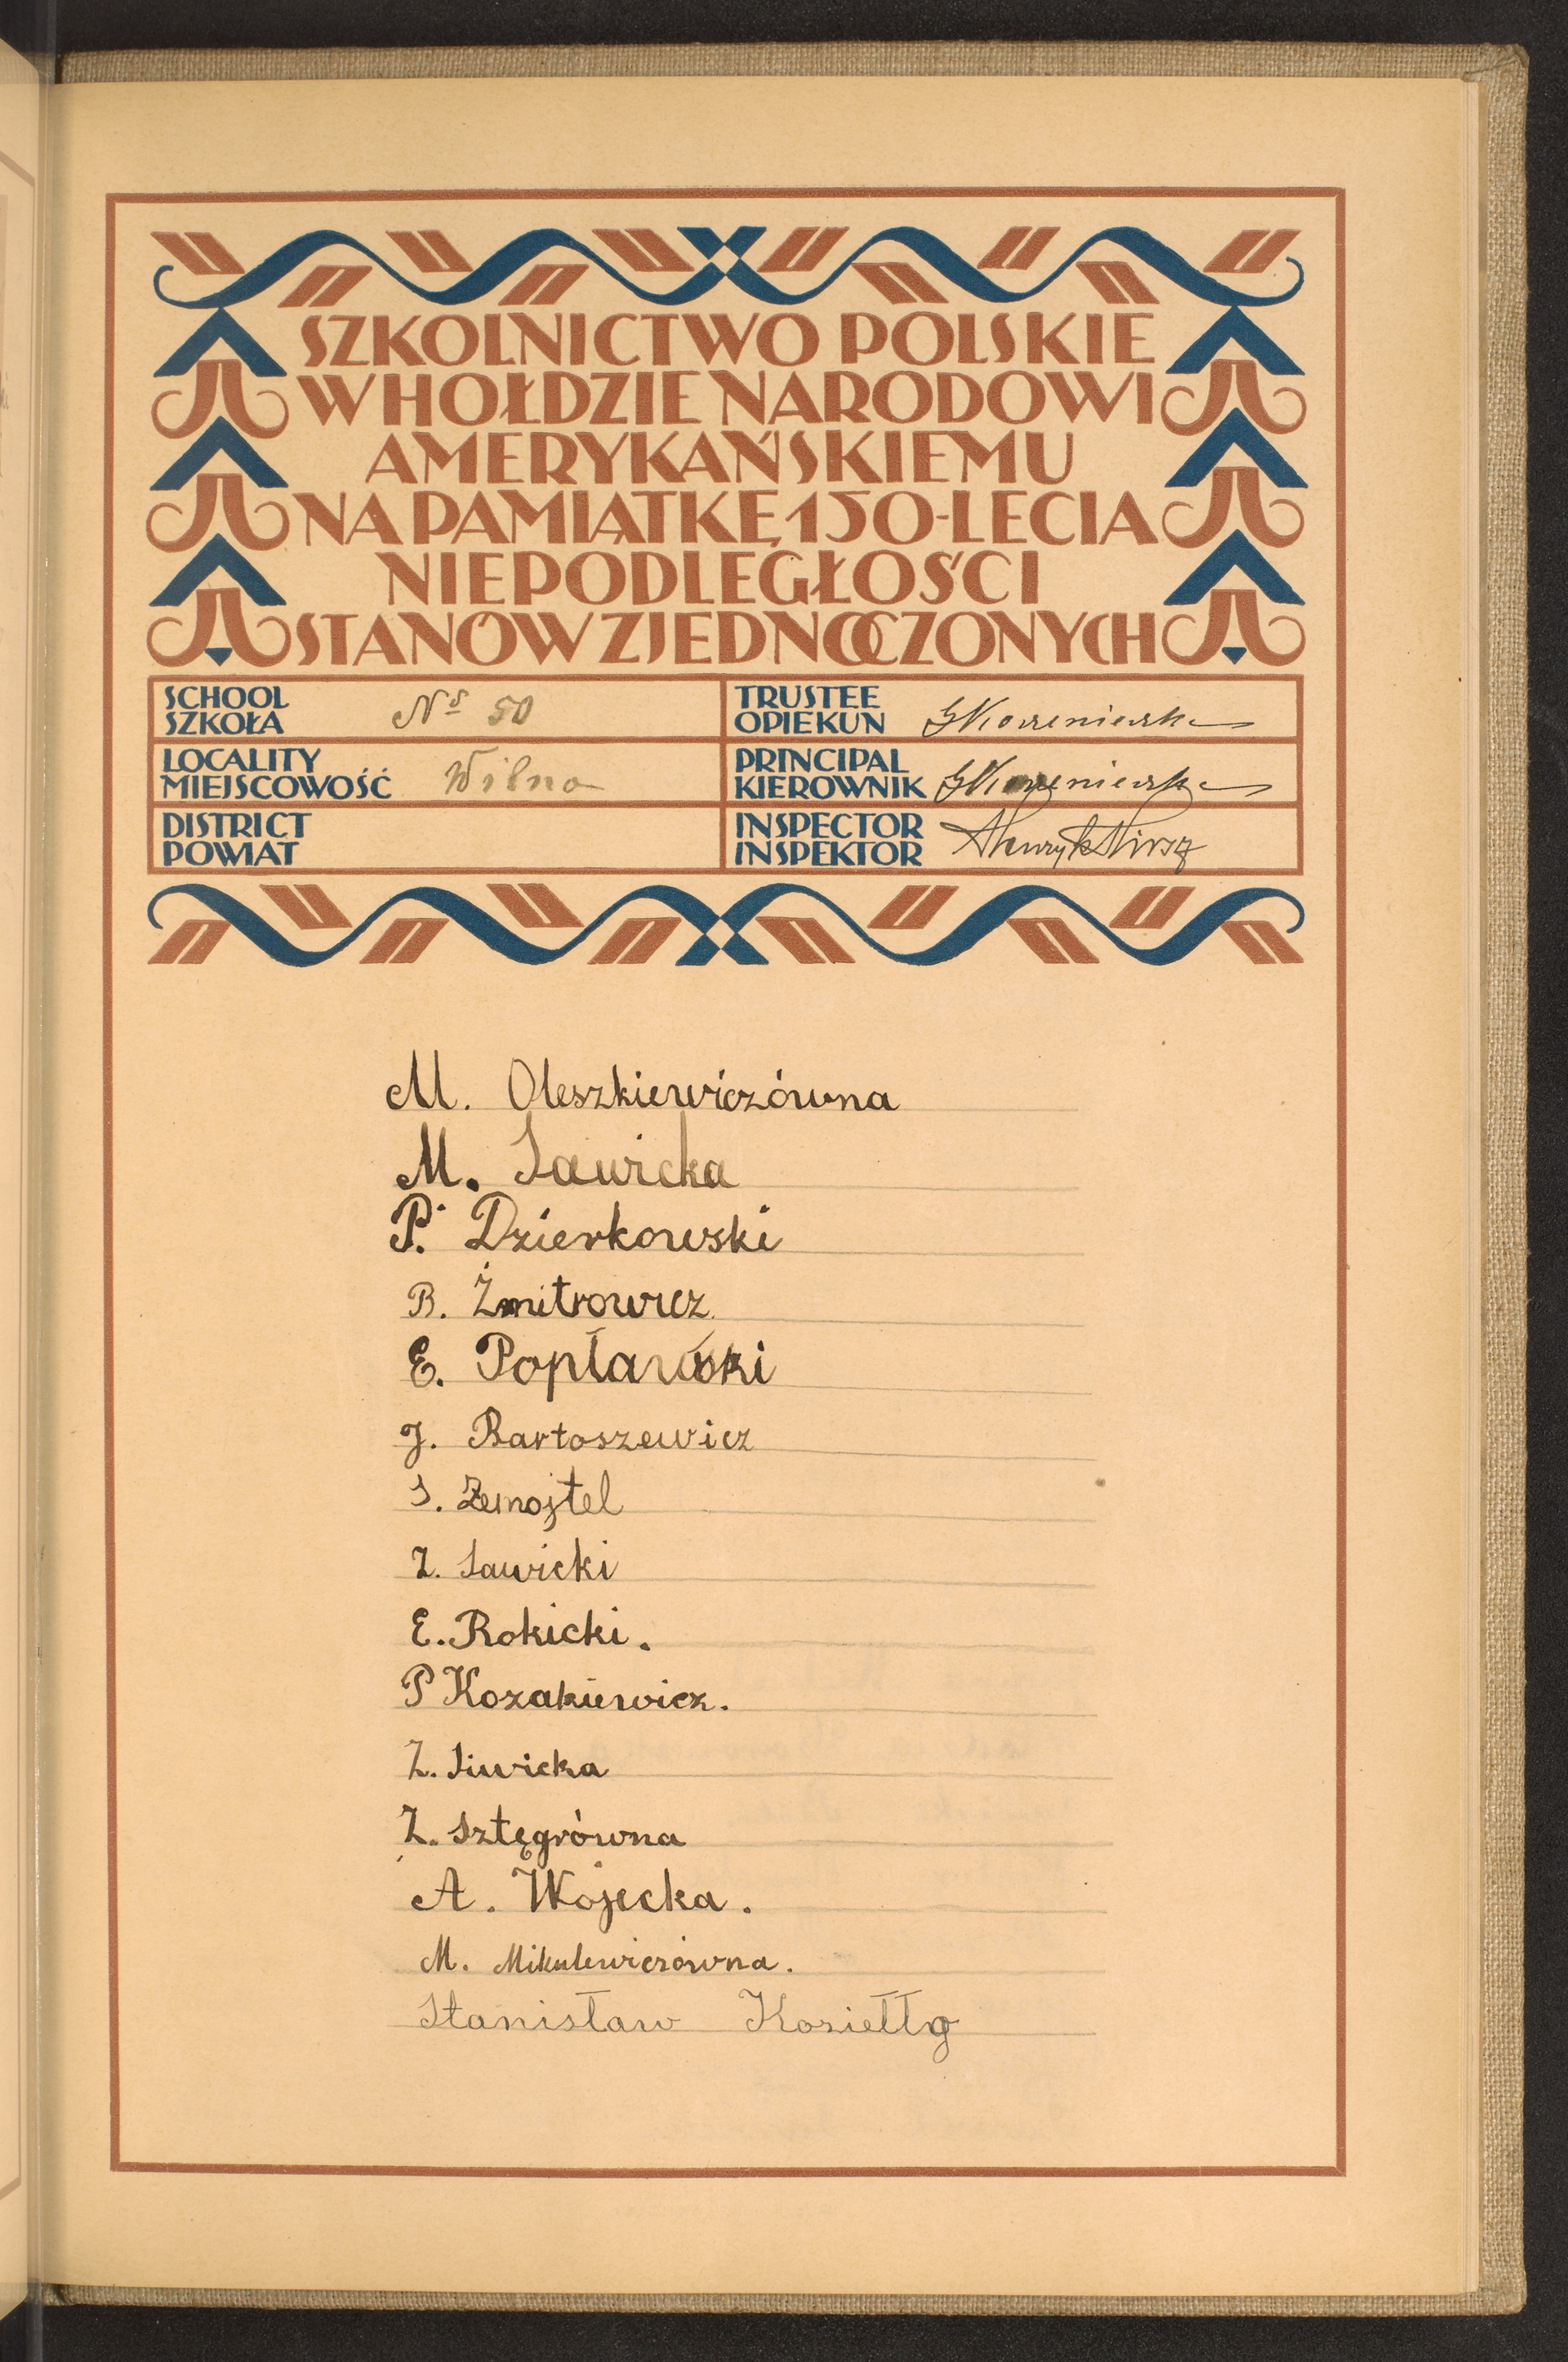 SZKOLNICTWO POLSKIE
W HOŁDZIE NARODOWI
AMERYKAŃSKIEMU
NA PAMIĄTKĘ 150-LECIA
NIEPODLEGŁOŚCI
STANÓW ZJEDNOCZONYCH
SCHOOL
SZKOŁA Nº 50
TRUSTEE
OPIEKUN
LOCALITY
MIEJSCOWOŚĆ Wilno
PRINCIPAL
KIEROWNIK
DISTRICT
POWIAT
INSPECTOR
INSPEKTOR Henryk
M. Oleszkiewiczówna
M. Sawicka
P. Dzierkowski
B. Żmitrowicz
E. Popławski
J. Bartoszewicz
S. Żemojtel
Z. Sawicki
E. Rokicki.
P Kozakiewicz.
Z. Siwicka
Z. Sztęgrówna
A. Wojecka.
M. Mikulewiczówna.
Stanisław Koziełło